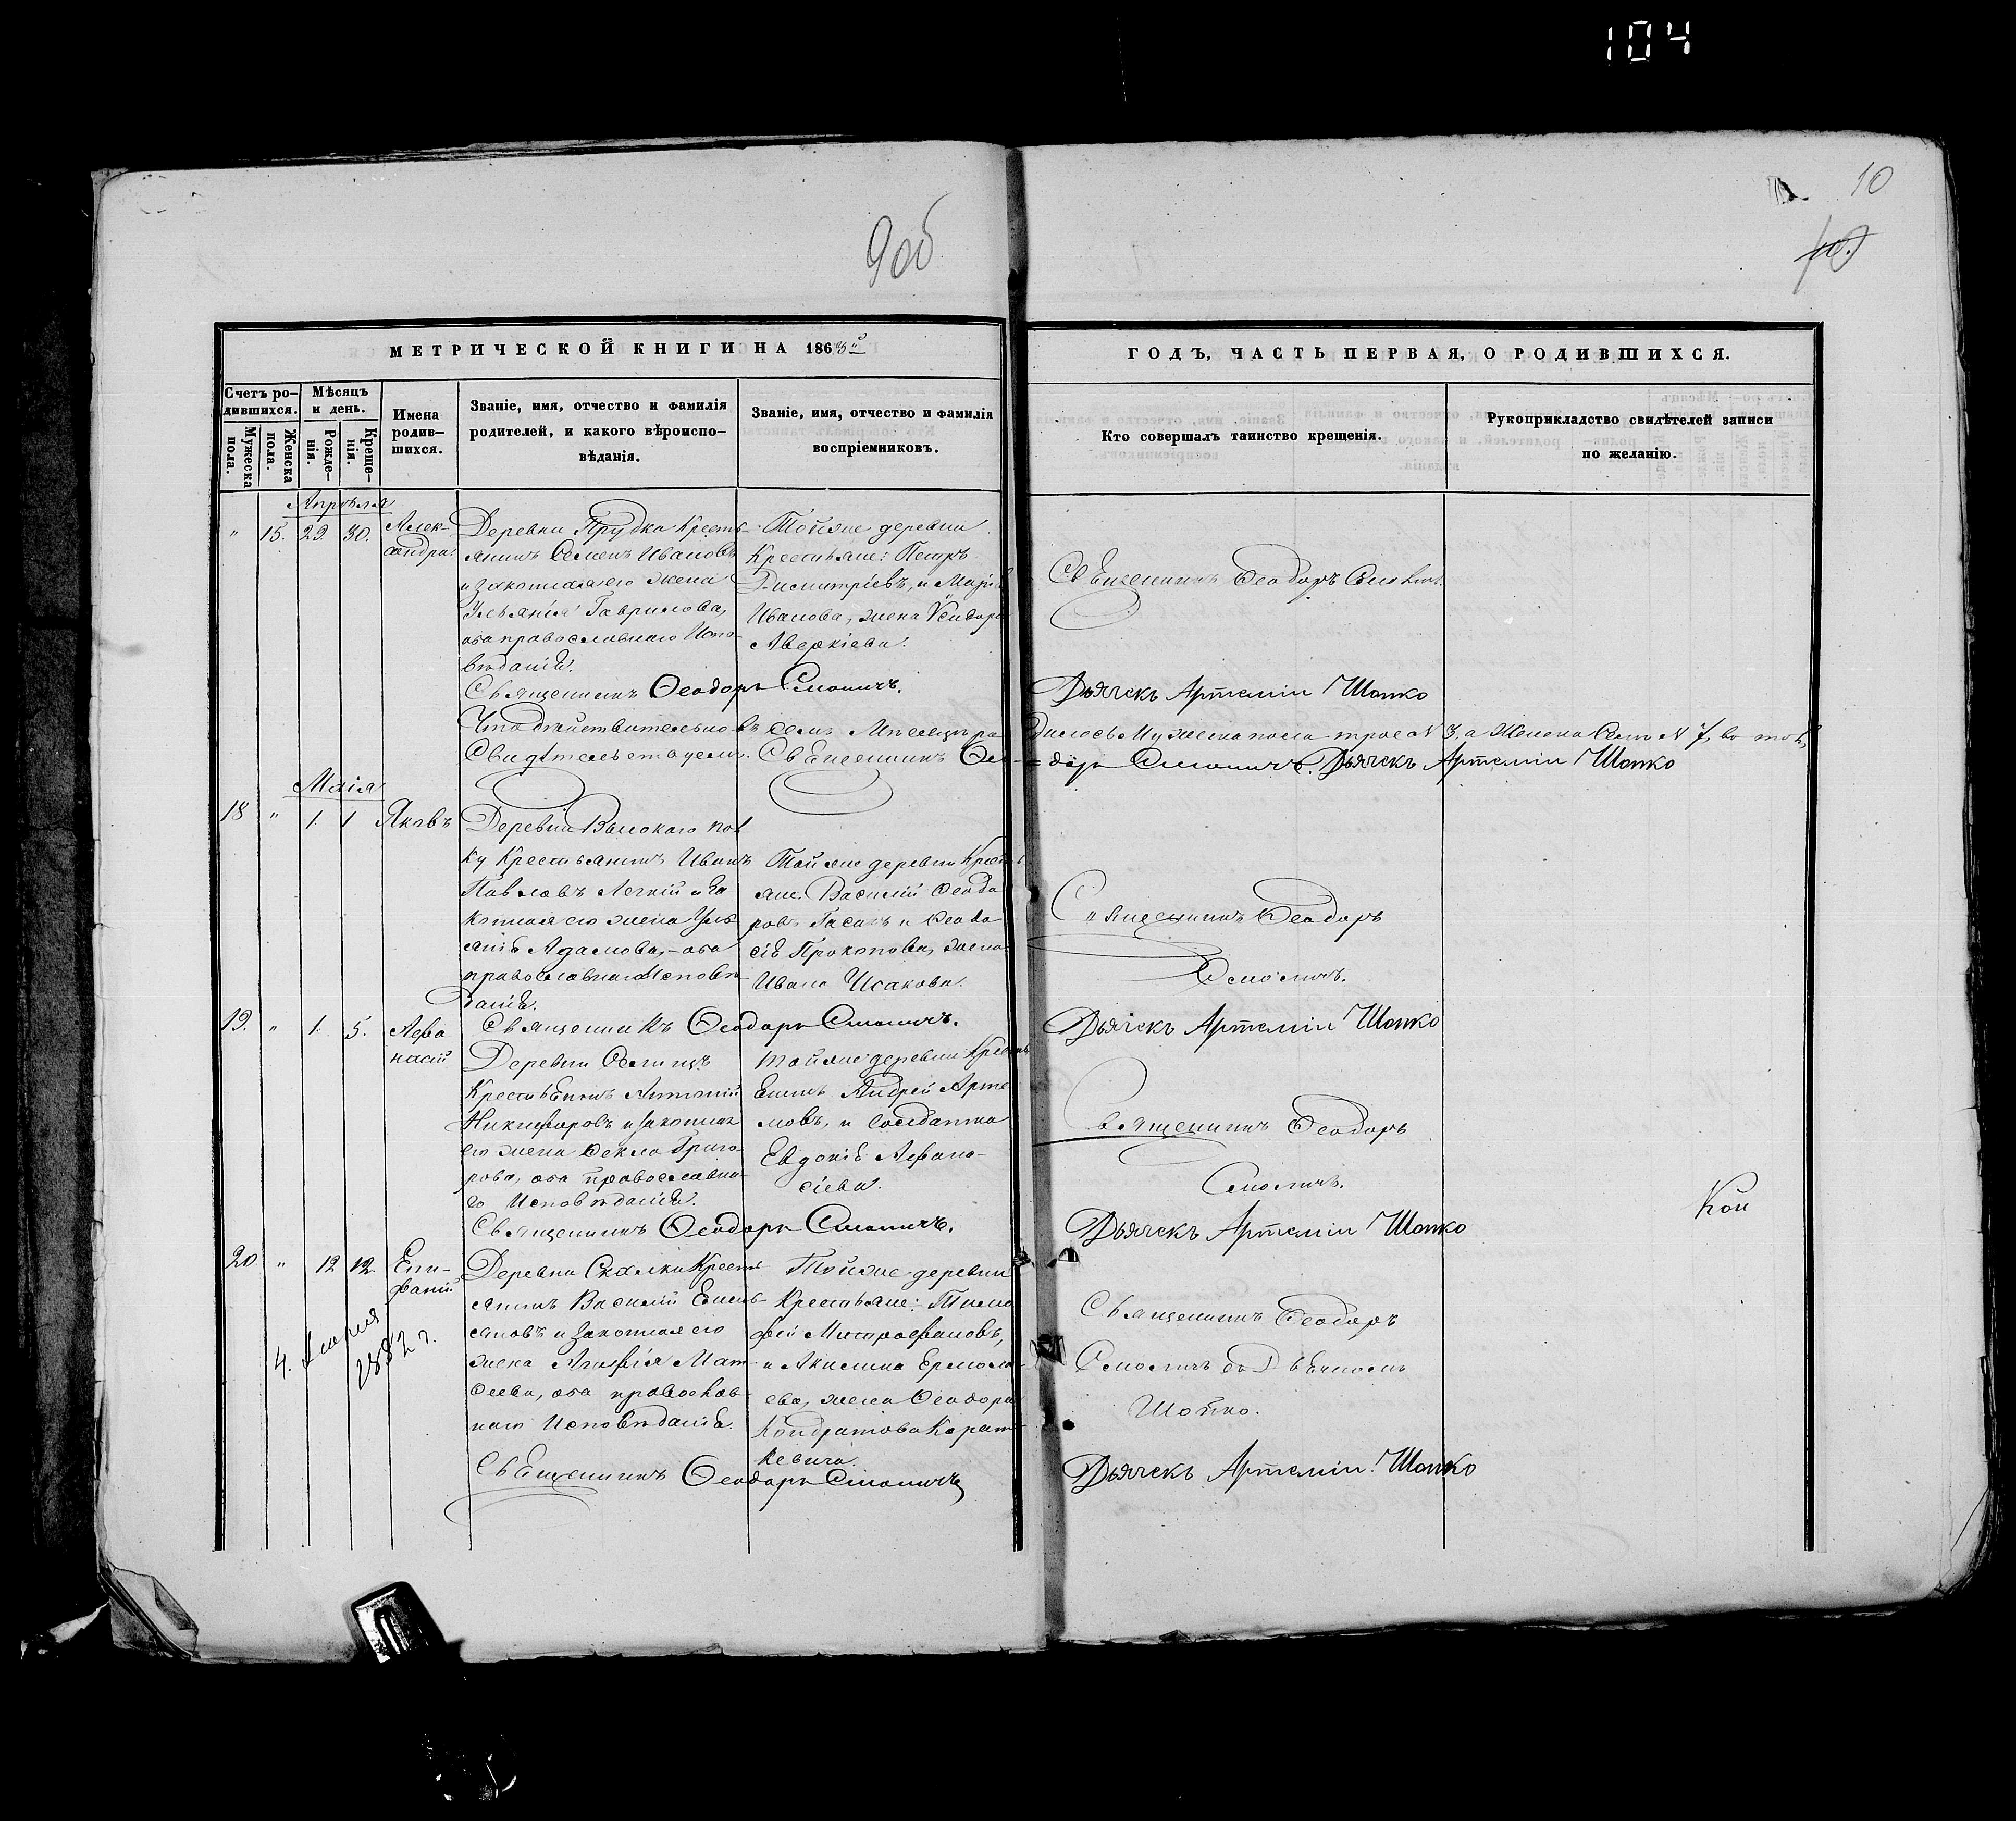 104
10
9об
МЕТРИЧЕСКОЙ КНИГИ НА 186
ГОДЪ, ЧАСТЬ ПЕРВАЯ, О РОДИВШИХСЯ.
Счетъ ро-
дившихся.
Мужеска пола.
Женска пола.
Мѣсяцъ
и день.
Рожде-
нія.
Креще-
нія.
Имена
родив-
шихся.
Званіе, имя, отчество и фамилія
родителей, и какого вѣроиспо-
вѣданія.
Званіе, имя, отчество и фамилія
воспріемниковъ.
Кто совершалъ таинство крещенія.
Рукоприкладство свидѣтелей записи
по желанію.
Апрѣля
" 15. 29. 30.
Алек-
сандра.
Деревни Прудка Кресть-
янинъ Семенъ Ивановъ
и законная его жена
Ульянія Гаврилова,
оба православнаго Испо-
вѣданія.
Священникъ Ѳеодоръ Смоличъ.
Тойже деревни
Крестьяне: Петръ
Димитріевъ, и Марія
Иванова, жена Исидора
Аверкіева.
Священникъ Ѳеодоръ
Дьячекъ Артемій Шопко
Что дѣйствительно въ семъ Мѣсяцѣ родилось Мужеска пола трое № 3, а Женска Семь № 7, въ томъ
Свидѣтельствуемъ. Священникъ Ѳеодоръ Смоличъ. Дьячекъ Артемій Шопко
Маія
18 " 1. 1 Яковъ
Деревни Высокого
Крестьянинъ Иванъ
Павловъ Легкій и за
конная его жена Уль
янія Адамова, - оба
православнаго Исповѣ
данія.
Священникъ Ѳеодоръ Смоличъ.
Тойже деревни Кресть
яне Василій Ѳеодо
ровъ и Ѳеодо
сія Прокопова, жена
Ивана Исакова.
Священникъ Ѳеодоръ
Смоличъ.
Дьячекъ Артемій Шопко
19. " 1. 5.
Афа
насій
Деревни
Крестьянинъ Антоній
Никифоровъ и законная
его жена Ѳекла Григо-
рова, оба православна-
го Исповѣданія.
Священникъ Ѳеодоръ Смоличъ.
Тойже деревни Кресть
янинъ Андрей Арте
мовъ, и солдатка
Евдокія Афана-
сіева.
Священникъ Ѳеодоръ
Смоличъ.
Дьячекъ Артемій Шопко
Коп
20 " 12 12.
Епи-
фаній
4.
1882 г.
Деревни Скалки Кресть
янинъ Василій Емель-
яновъ и законная его
жена Агафія Мат-
ѳеева, оба православ-
наго Исповѣданія.
Священникъ Ѳеодоръ Смоличъ
Тойже деревни
Крестьяне: Тимо
фей Митрофановъ,
и Акилина Ермола-
ева, жена Ѳеодора
Кондратова Корат-
кевича.
Священникъ Ѳеодоръ
Смоличъ съ Дьячкомъ
Шопко.
Дьячекъ Артемій Шопко